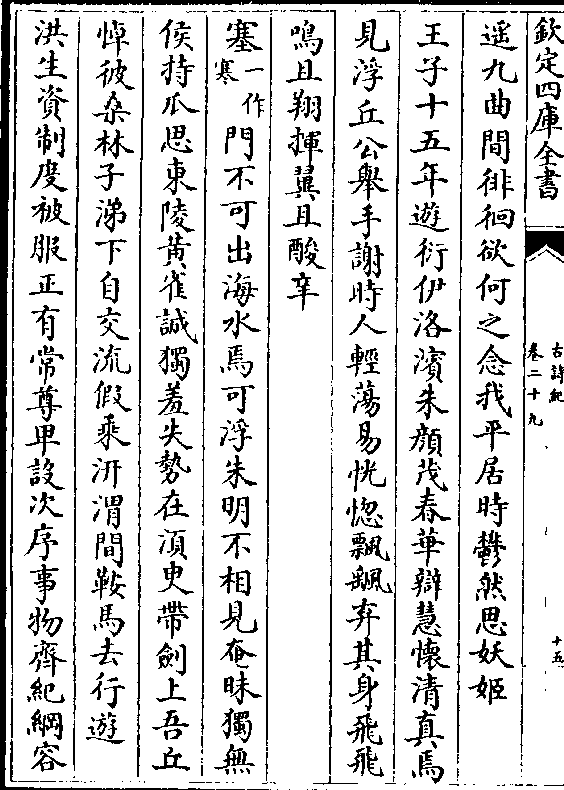 欽定四庫全書
古詩紀
卷二十九
十五
遥九曲間徘徊欲何之念我平居時鬱然思妖姬
王子十五年遊衍伊洛濱朱顔茂春華辯慧懷清真焉
見浮丘公舉手謝時人輕蕩易恍惚飄颻弃其身飛飛
鳴且翔揮翼且酸辛
塞一作寒門不可出海水焉可浮朱明不相見奄昧獨無
侯持瓜思東陵黄雀誠獨羞失勢在湏臾帶劍上吾丘
悼彼桑林子涕下自交流假乘汧渭間鞍馬去行遊
洪生資制度被服正有常尊卑設次序事物齊紀綱容